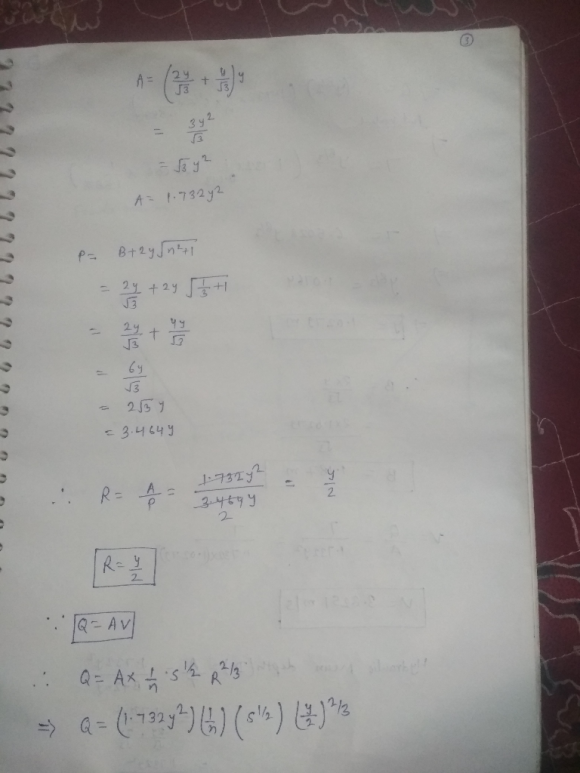 3
A = (2y/√3 + y/√3) y
= 3y²/√3
= √3 y²
A = 1.732y²
P = B + 2y√(n²+1)
= 2y/√3 + 2y √(1/3 + 1)
= 2y/√3 + 4y/√3
= 6y/√3
= 2√3 y
= 3.464y
∴ R = A/P = 1.732y²/3.464y = y/2
2
R = y/2
∵ Q = AV
∴ Q = A × 1/n · S^1/2 R^2/3
⇒ Q = (1.732y²) (1/n) (S^1/2) (y/2)^2/3